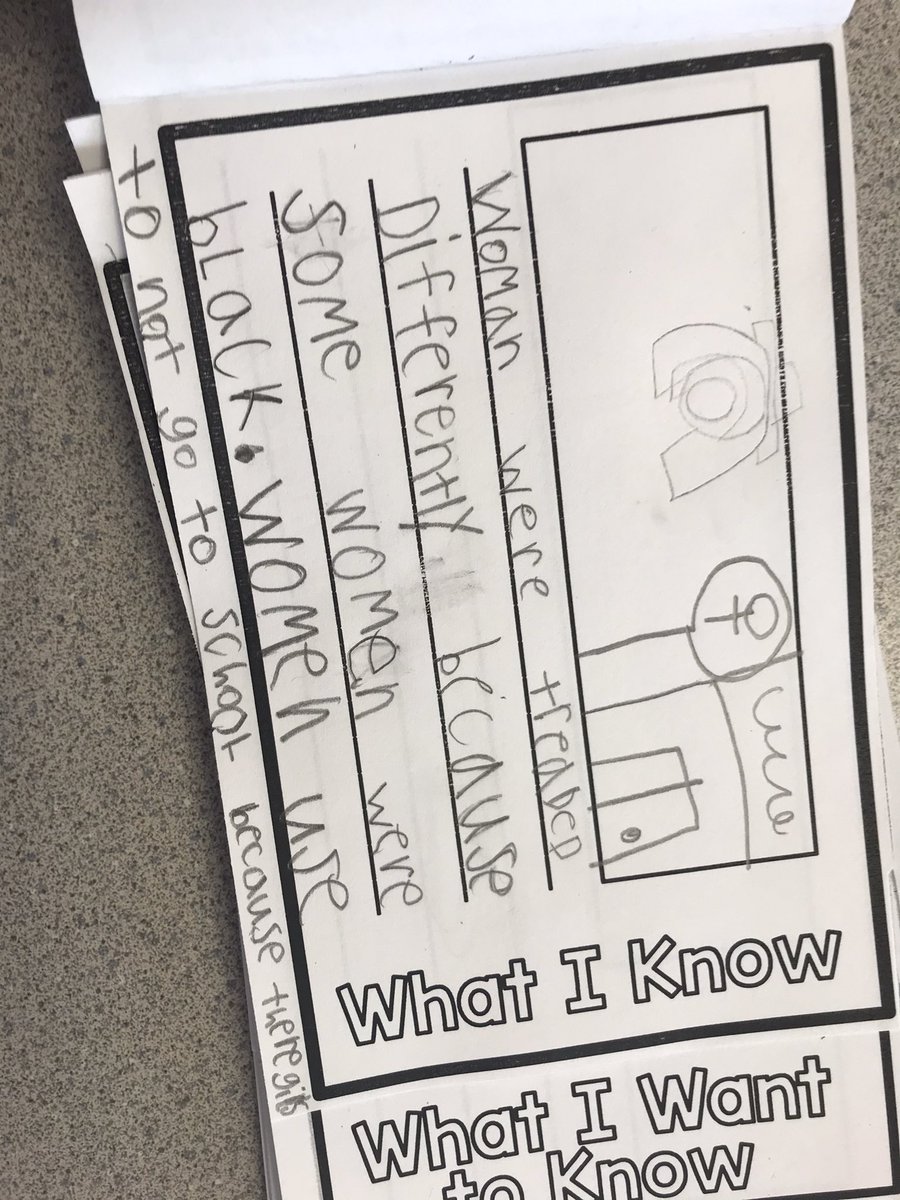 Woman were treabeD
DifferentlY. because
Some women were
bLack. women use
to not go to school because there
What I Know
What I Want
to Know